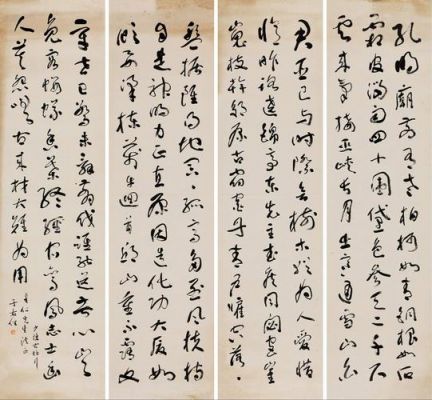 孔明廟前有老柏柯如青銅根如石
霜皮溜雨四十圍黛色參天二千尺
雲來氣接巫峽長月出寒通雪山白
君臣已與時際會樹木猶為人愛惜
憶昨路遶錦亭東先主武侯同閟宮崔
嵬枝幹郊原古窈窕丹青戶牖空落落
盤據雖得地冥冥孤高多烈風扶持
自是神明力正直原因造化功大廈如
傾要梁棟萬牛迴首邱山重不露文
章世已驚未辭翦伐誰能送苦心豈
免容螻蟻香葉終經宿鸞鳳志士幽
人莫怨嗟古來材大難為用
少陵古柏行
仁先生法正
于右任